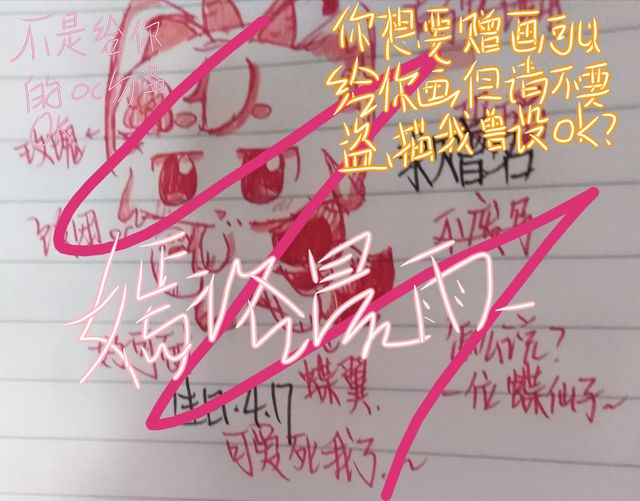 不是给你
的oc勿盗
你想要赠画可以
给你画但请不要
盗,描我兽设OK?
玫瑰
求赠名
嫣洛暴雨
怎么說?
佳口.4.17
蝶翼
一位蝶仙子~
可爱死我了..~